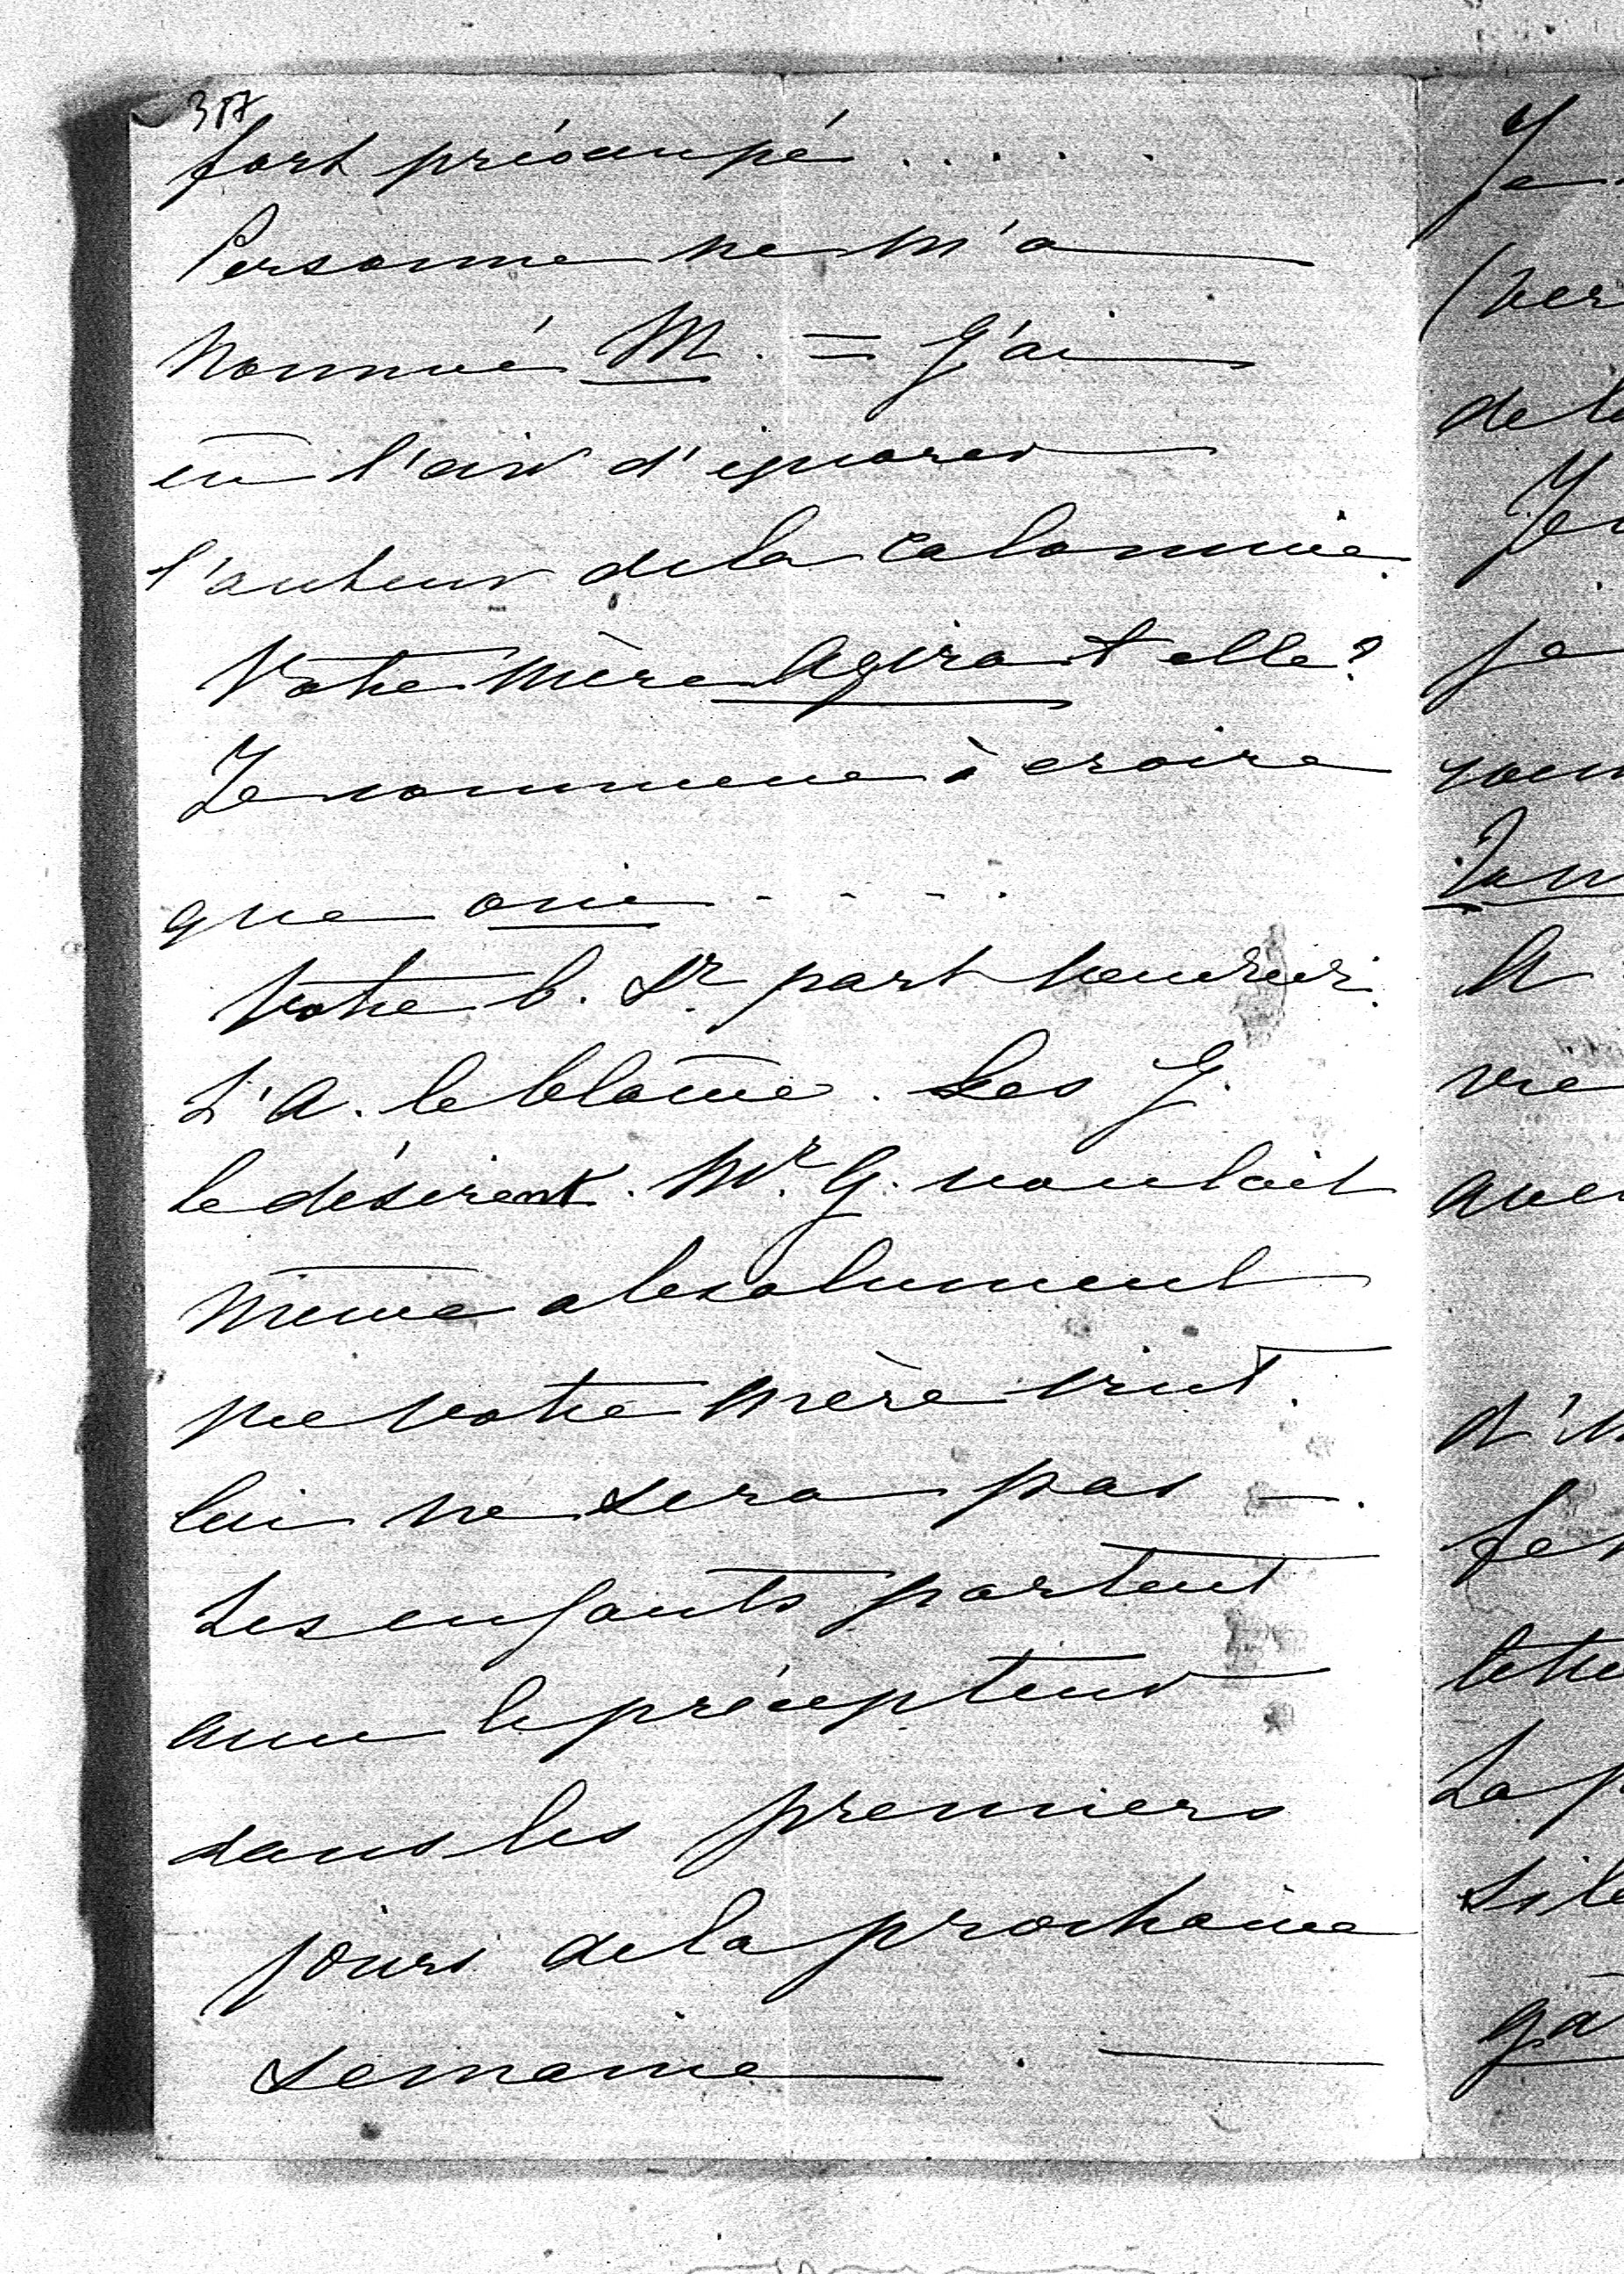 387
fort préoccupé . . . . .
Personne ne m'a
nommé M. = J'ai
eu l'air d'ignorer
l'auteur de la calomnie.
Votre mère agira-t-elle?
Je commence à croire
que oui - - - .
Votre b. Sr part
L'A. le blâme. Les J.
le désirent. Mr. G. voulait
même absolument
que votre mère vint.
lui ne sera pas —.
Les enfants partent
avec le précepteur
dans les premiers
jours de la prochaine
semaine . —
Je
(ver
de l
Je
je
vou
A
vre
avec
d'in
fe
lettre
La p
Si l